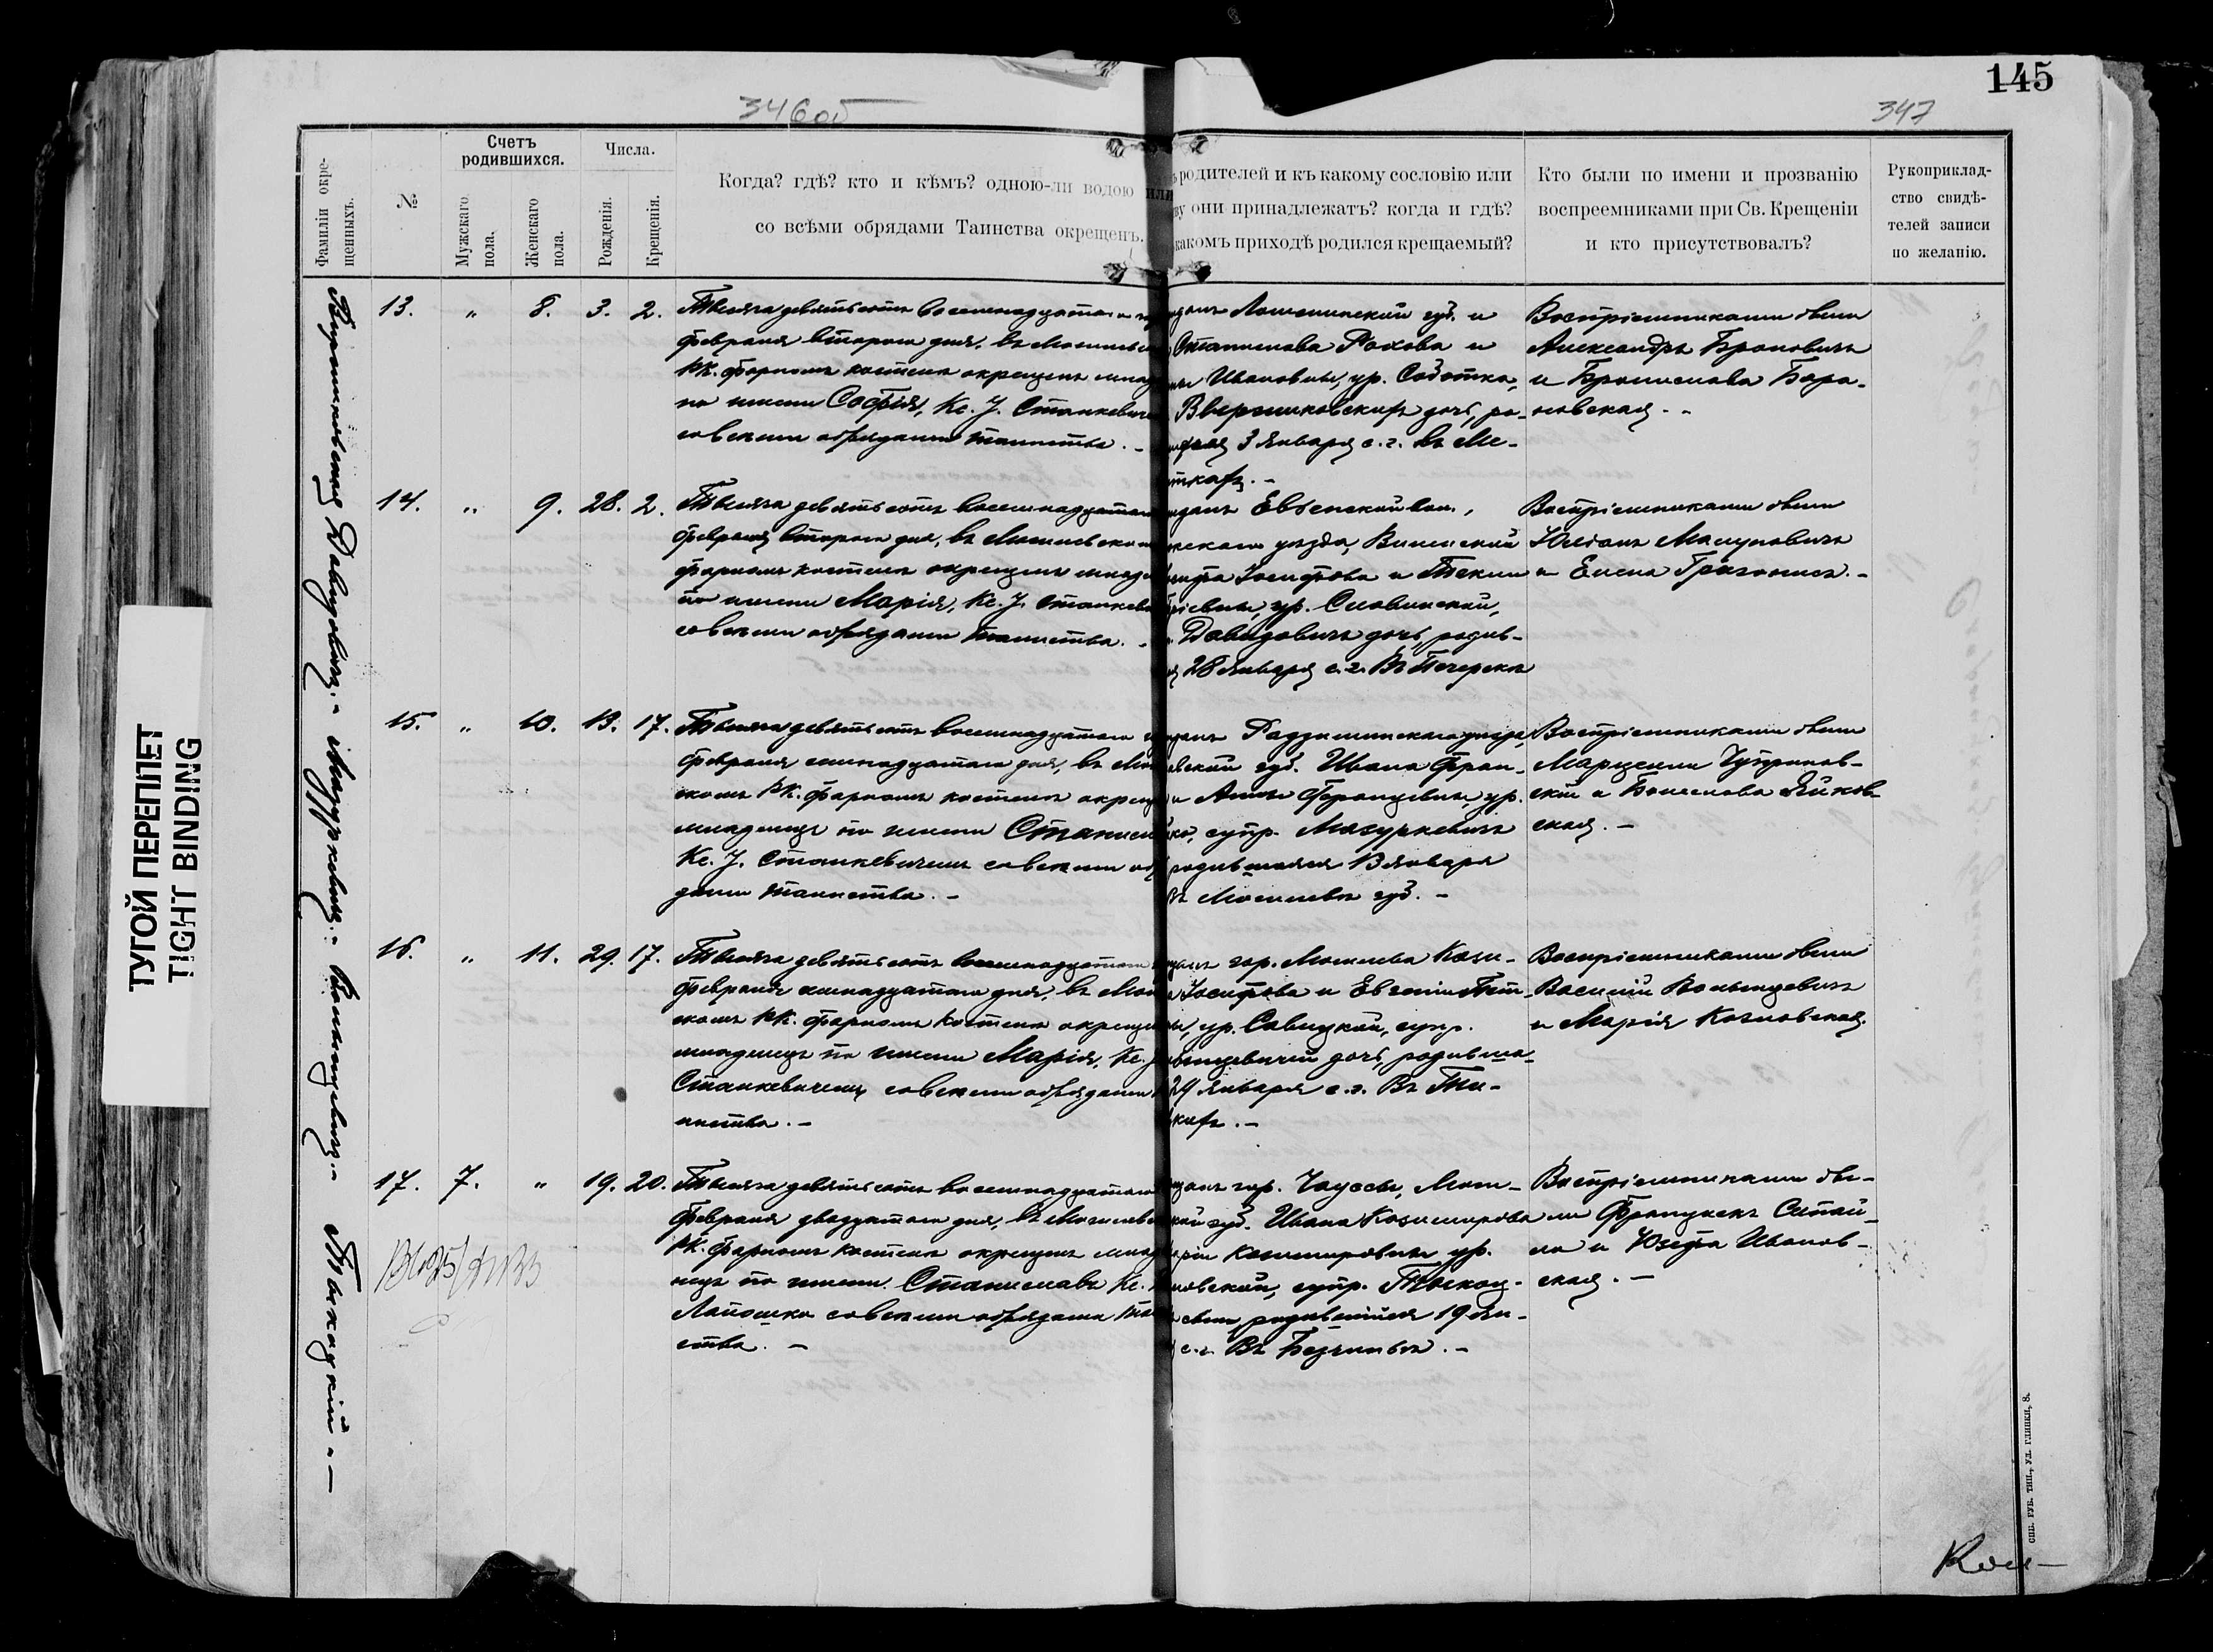 145
346об
347
ТУГОЙ ПЕРЕПЛЕТ
TIGHT BINDING
Фамиліи окре-
щенныхъ.
№
Счетъ
родившихся.
Мужскаго
пола.
Женскаго
пола.
Числа.
Рожденія.
Крещенія.
Когда? гдѣ? кто и кѣмъ? одною-ли водою или
со всѣми обрядами Таинства окрещенъ.
родителей и къ какому сословію или
ву они принадлежатъ? когда и гдѣ?
какомъ приходѣ родился крещаемый?
Кто были по имени и прозванію
воспреемниками при Св. Крещеніи
и кто присутствовалъ?
Рукоприклад-
ство свидѣ-
телей записи
по желанію.
13. " 8. 3. 2.
Тысяча девятьсотъ восемнадцатаго
февраля второго дня, въ Могилевск
РК. фарномъ костелѣ окрещенъ млад
по имени Софія, Кс. J. Станкевиче
со всѣми обрядами таинства. -
данъ Ломжинской губ. и
Станислава Рохова и
ны Ивановны, ур. Соботка,
дочь, ро-
3 Января с. г. въ Ме-
ткахъ. -
Воспріемниками были
Александръ Броновичъ
и Бронислава Бара-
новская. -
14. " 9. 28. 2.
Давидовичъ. -
Тысяча девятьсотъ восемнадцатаго
февраля второго дня, въ Могилевском
фарномъ костелѣ окрещенъ младе
по имени Марія, Кс. J. Станкеви
со всѣми обрядами таинства. -
данъ Евьенской вол.,
скаго уѣзда, Виленской
Іосифова и Теклі
ріевны, ур. Славинской,
Давидовичъ дочь, родив-
28 Января с. г. Въ Печерскѣ
Воспріемниками были
Юліанъ Мацуловичъ
и Елена Григонисъ. -
15. " 10. 13. 17.
Мазуркевичъ. -
Тысяча девятьсотъ восемнадцатаго
Февраля семнадцатаго дня, въ Мог
скомъ РК. фарномъ костелѣ окрещ
младенецъ по имени Станисл
Кс. J. Станкевичемъ со всѣми об
дами таинства. -
данъ Радзиминскаго уѣзда,
ской губ. Ивана Фран-
и Анны Францевны, ур.
ко, супр. Мазуркевичъ
родившаяся 13 января
въ Могилевѣ губ. -
Воспріемниками были
Марцелій
скій и Болеслава Янков-
ская. -
16. " 11. 29. 17.
Волынцевичъ. -
Тысяча девятьсотъ восемнадцатаго
февраля семнадцатаго дня, въ Мог
скомъ РК. фарномъ костелѣ окрещ
младенецъ по имени Марія, Кс. J
Станкевичемъ со всѣми обрядами
инства. -
данъ гор. Могилева Кази-
Іосифова и Евгеніи Пет-
ны, ур. Савицкой, супр.
ынцевичей дочь, родивша-
29 января с. г. Въ Ти-
кахъ. -
Воспріемниками были
Василій Волынцевичъ
и Марія Козловская.
17. 7. " 19. 20.
Тысяча девятьсотъ восемнадцатаго
Февраля двадцатаго дня, въ Могилевс
РК. фарномъ костелѣ окрещенъ млад
нецъ по имени Станиславъ Кс.
со всѣми обрядами таи
ства. -
данъ гор. Чаусы, Моги-
кой губ. Ивана Казимирова
ріи Казимировны ур.
новской, супр.
сынъ, родившійся 19 Ян-
с. г. Въ
Воспріемниками бы-
ли Францискъ
ло и Юзефа Иванов-
ская. -
СПБ. ГУБ. ТИП., УЛ. ГЛИНКИ, 8.